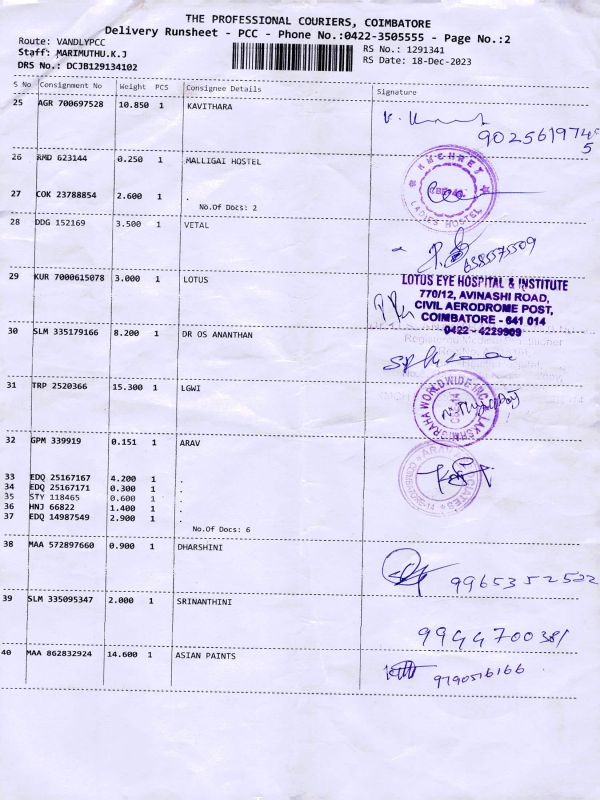 THE PROFESSIONAL COURIERS, COIMBATORE
Delivery Runsheet - PCC - Phone No.:0422-3505555 - Page No.:2
Route: VANDLYPCC
RS No.: 1291341
Staff: MARIMUTHU.K.J
RS Date: 18-Dec-2023
DRS No.: DCJB129134102
S No Consignment No Weight PCS Consignee Details Signature
25 AGR 700697528 10.850 1 KAVITHARA
26 RMD 623144 0.250 1 MALLIGAI HOSTEL
LADIES HOSTEL
27 COK 23788854 2.600 1 .
No.Of Docs: 2
28 DDG 152169 3.500 1 VETAL
29 KUR 7000615078 3.000 1 LOTUS
LOTUS EYE HOSPITAL & INSTITUTE
770/12, AVINASHI ROAD,
CIVIL AERODROME POST,
COIMBATORE - 641 014
0422 - 4229909
30 SLM 335179166 8.200 1 DR OS ANANTHAN
31 TRP 2520366 15.300 1 LGWI
32 GPM 339919 0.151 1 ARAV
33 EDQ 25167167 4.200 1 .
34 EDQ 25167171 0.300 1 .
35 STY 118465 0.600 1 .
36 HNJ 66822 1.400 1 .
37 EDQ 14987549 2.900 1 .
No.Of Docs: 6
38 MAA 572897660 0.900 1 DHARSHINI
9965352522
39 SLM 335095347 2.000 1 SRINANTHINI
9944700381
40 MAA 862832924 14.600 1 ASIAN PAINTS
9790516166